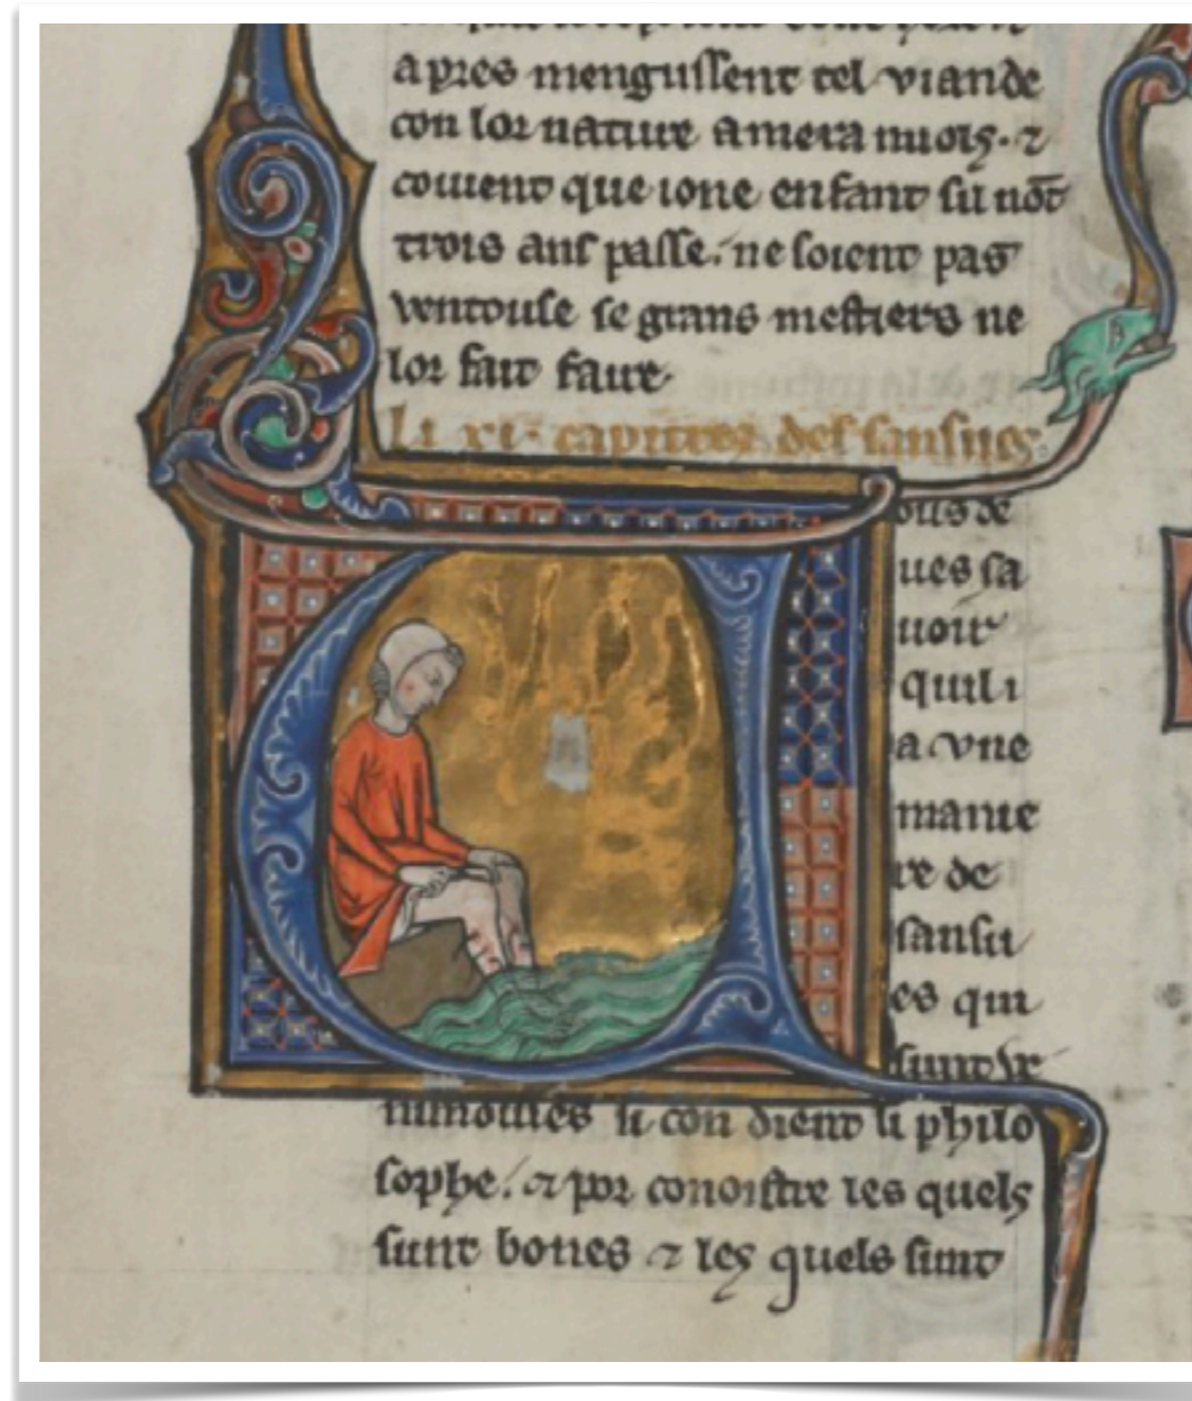 apres mengussent tel viande
con lor nature amera miols. ⁊
couient que ione enfant sil nōt
trois ans passe. ne soient pas
ventouse se grans mestiers ne
lor fait faire.
Li xi. capitres des sansues.
ous de
ues sa
uoir
quil i
a vne
manie
re de
sansu
es qui
sunt ve
nimouses si con dient li philo
sophe. ⁊ por conoistre les quels
sunt bones ⁊ les quels sunt